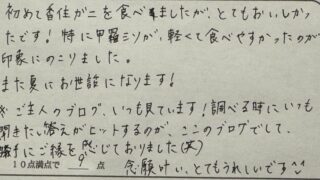 初めて香住ガニを食べましたが、とてもおいしかっ
たです！特に甲羅ミソが、軽くて食べやすかったのが
印象にのこりました。
また夏にお世話になります！
※ご主人のブログ、いつも見ています！調べる時にいつも
聞きたい答えがヒットするのが、ここのブログでして、
勝手にご縁を感じておりました(笑)
10点満点で 9 点 念願叶い、とてもうれしいです